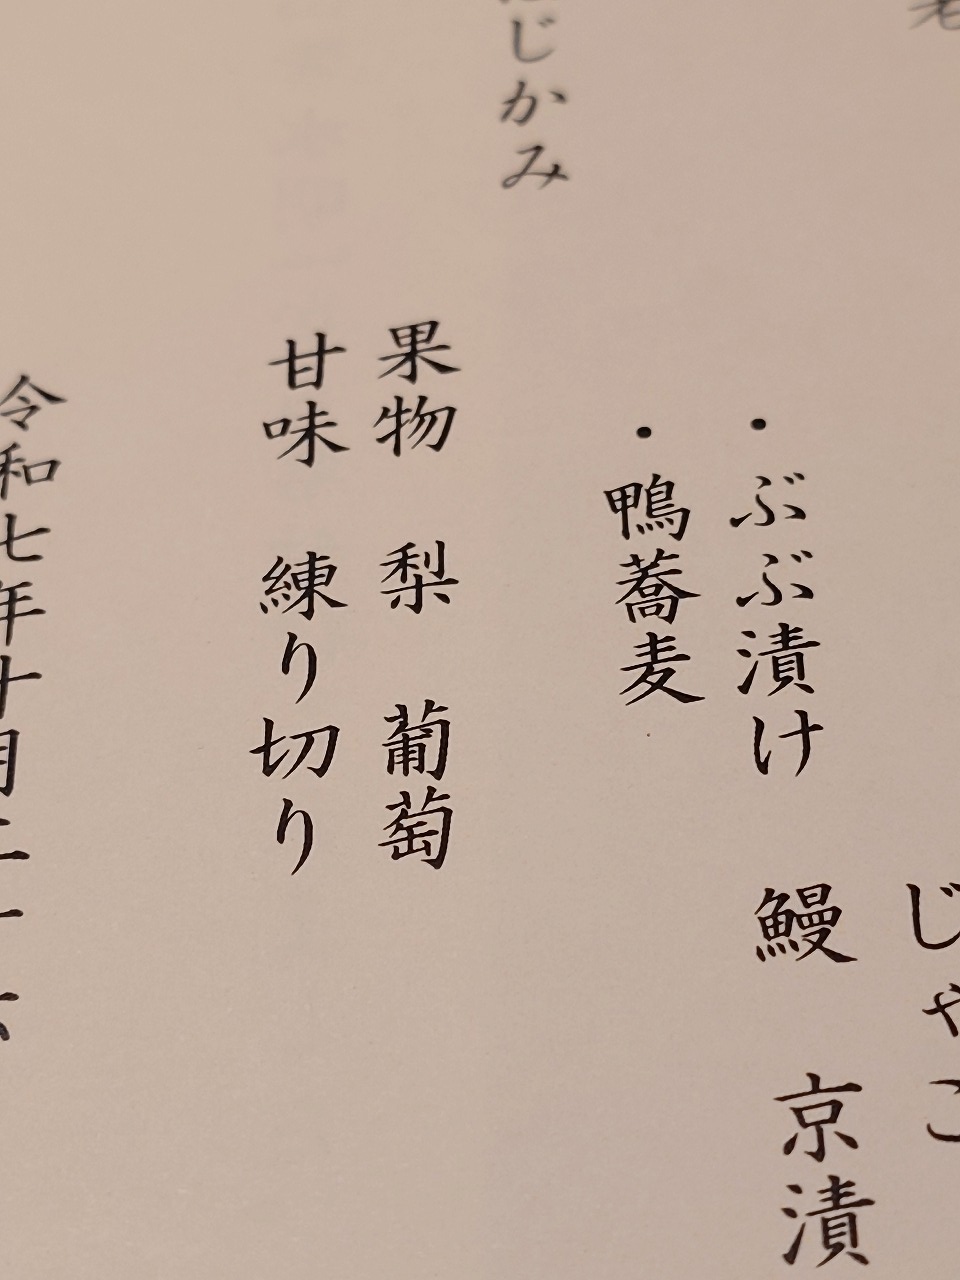 じゃこ
・ぶぶ漬け 鰻 京漬
・鴨蕎麦
じかみ
果物 梨 葡萄
甘味 練り切り
令和七年十月二十六